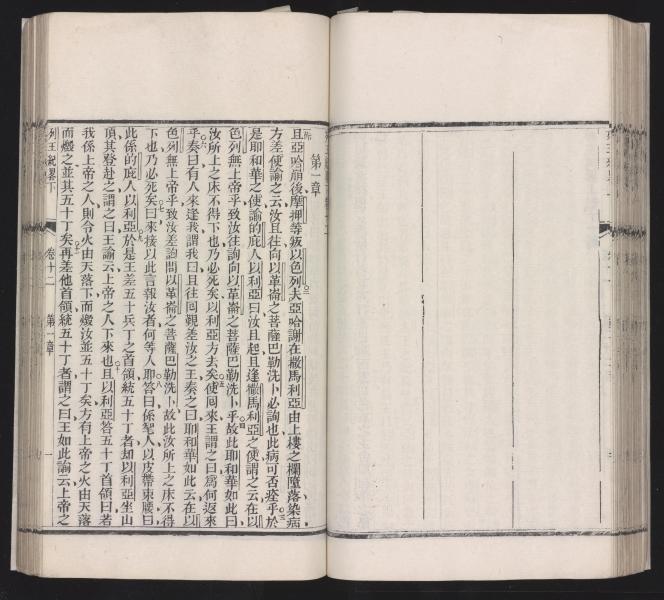 第一章
且亞哈崩後摩押等叛以色列夫亞哈謝在撒馬利亞由上樓之欄墮落染病
方差使諭之云汝且往向以革崙之菩薩巴勒洗卜必詢也此病可否痊乎於
是耶和華之使諭的庇人以利亞曰汝且起且逢撒馬利亞之使謂之云在以
色列無上帝乎致汝往詢向以革崙之菩薩巴勒洗卜乎故此耶和華如此曰
汝所上之床不得下也乃必死矣以利亞方去矣使囘來王謂之曰爲何返來
乎奏曰有人來逢我謂我曰且往囘覲差汝之王奏之曰耶和華如此云在以
色列無上帝乎致汝差詢問以革崙之菩薩巴勒洗卜故此汝所上之床不得
下也乃必死矣曰來接以此言報汝者何等人耶答曰係髦人以皮帶束腰曰
此係的庇人以利亞於是王差五十兵丁之首領統五十丁者却以利亞坐山
頂其登赴之謂之曰王諭云上帝之人下來也且以利亞答五十丁首領曰若
我係上帝之人則令火由天落下而燬汝並五十丁矣方有上帝之火由天落
而燬之並其五十丁矣再差他首領統五十丁者謂之曰王如此諭云上帝之
列王紀畧下 卷十二 第一章 一